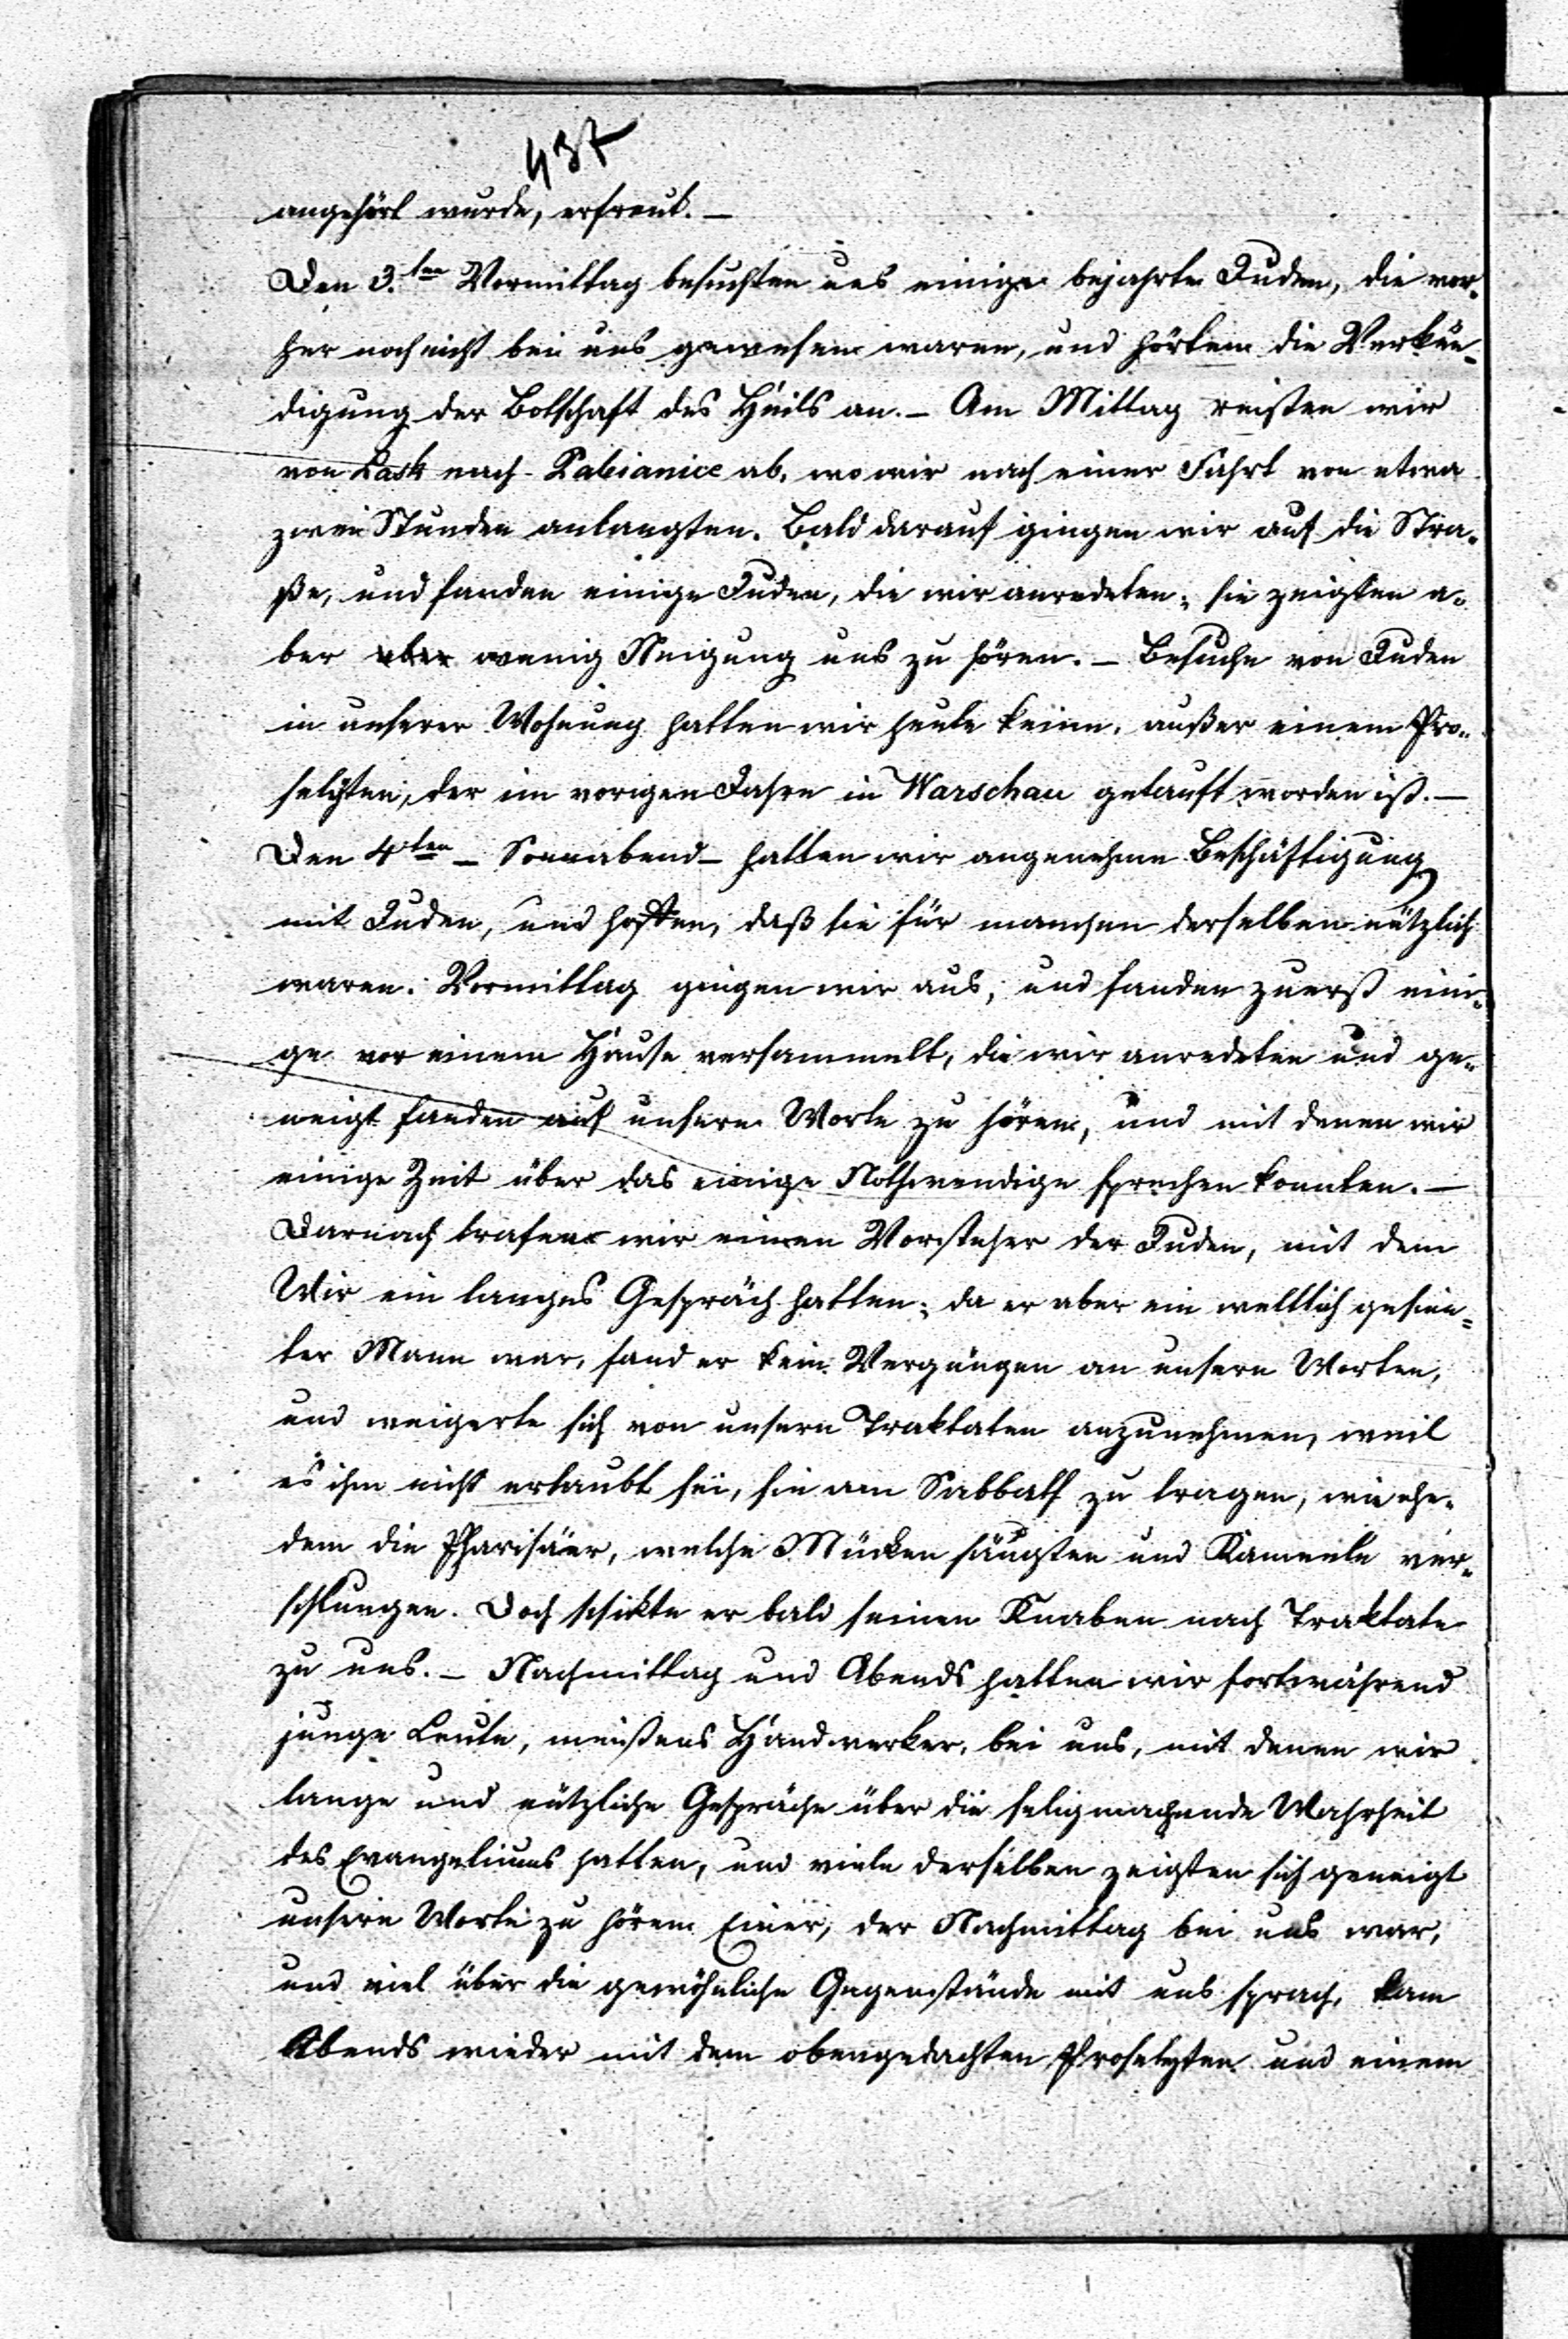 437
angehört wurde, erfreut. —
Den 3.ten Vormittag besuchten uns einige bejahrte Juden, die vor-
her noch nicht bei uns gewesen waren, und hörten die Verkün-
digung der Botschaft des Heils an. — Am Mittag reisten wir
von Lask nach Pabianice ab, wo wir nach einer Fahrt von etwa
zwei Stunden anlangten. Bald darauf gingen wir auf die Stra-
ße, und fanden einige Juden, die wir anredeten; sie zeigten a-
ber aber wenig Neigung uns zu hören. — Besuche von Juden
in unserer Wohnung hatten wir heute keine, außer einem Pro-
selyten, der im vorigen Jahre in Warschau getauft worden ist. —
Den 4ten — Sonnabend — hatten wir angenehme Beschäftigung
mit Juden, und hofften, daß sie für manchen derselben nützlich
waren. Vormittag gingen wir aus, und fanden zuerst eini-
ge vor einem Hause versammelt, die wir anredeten und ge-
neigt fanden auf unsere Worte zu hören, und mit denen wir
einige Zeit über das einige Nothwendige sprechen konnten. —
Darnach trafen wir einen Vorsteher der Juden, mit dem
Wir ein langes Gespräch hatten; da er aber ein weltlich gesinn-
ter Mann war, fand er kein Vergüngen an unsern Worten,
und weigerte sich von unsern Traktaten anzunehmen, weil
es ihm nicht erlaubt sei, sie am Sabbath zu tragen, wie ehe-
dem die Pharisäer, welche Mücken säugten und Kameele ver-
schlungen. Doch schikte er bald seinen Knaben nach Traktate
zu uns. — Nachmittag und Abends hatten wir fortwährend
junge Leute, meistens Handwerker, bei uns, mit denen wir
lange und nützliche Gespräche über die seligmachende Wahrheit
des Evangeliums hatten, und viele derselben zeigten sich geneigt
unsere Worte zu hören. Einer, der Nachmittag bei uns war,
und viel über die gewöhnliche Gegenstände mit uns sprach, kam
Abends wieder mit dem obengedachten Proselyten und einem